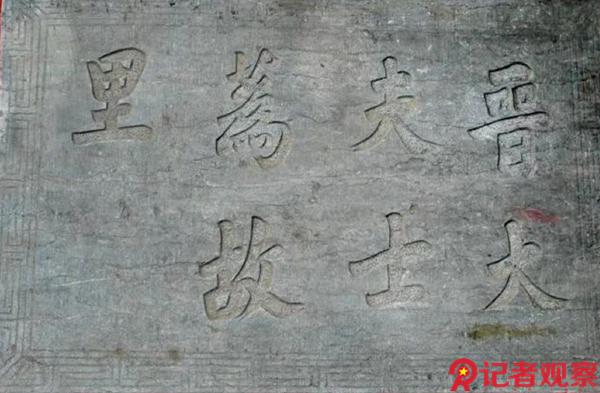 晋大
夫士
蒍故
里
记者观察